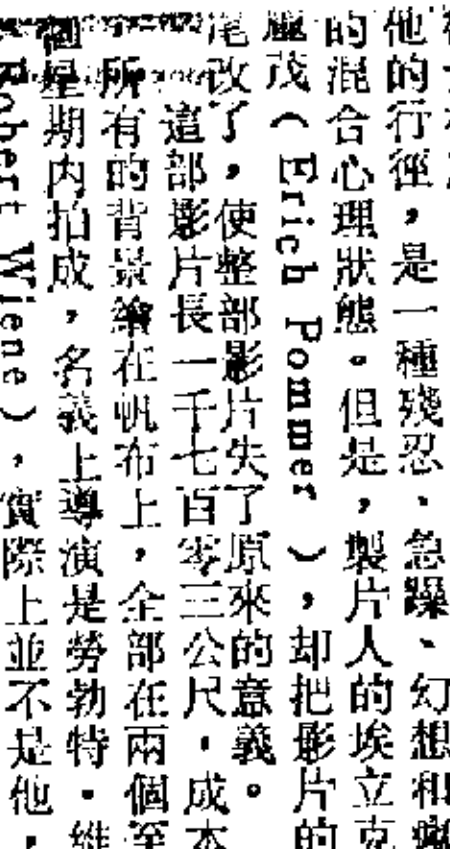 他的行徑，是一種殘忍、急躁、幻想和
的混合心理狀態。但是，製片人的埃立克
茂（Erich Pommer），却把影片的
尾改了，使整部影片失了原來的意義。
這部影片長一千七百零三公尺，成本
所有的背景繪在帆布上，全部在兩個至
個星期内拍成，名義上導演是勞勃特・維
Robert Wiene），實際上並不是他，